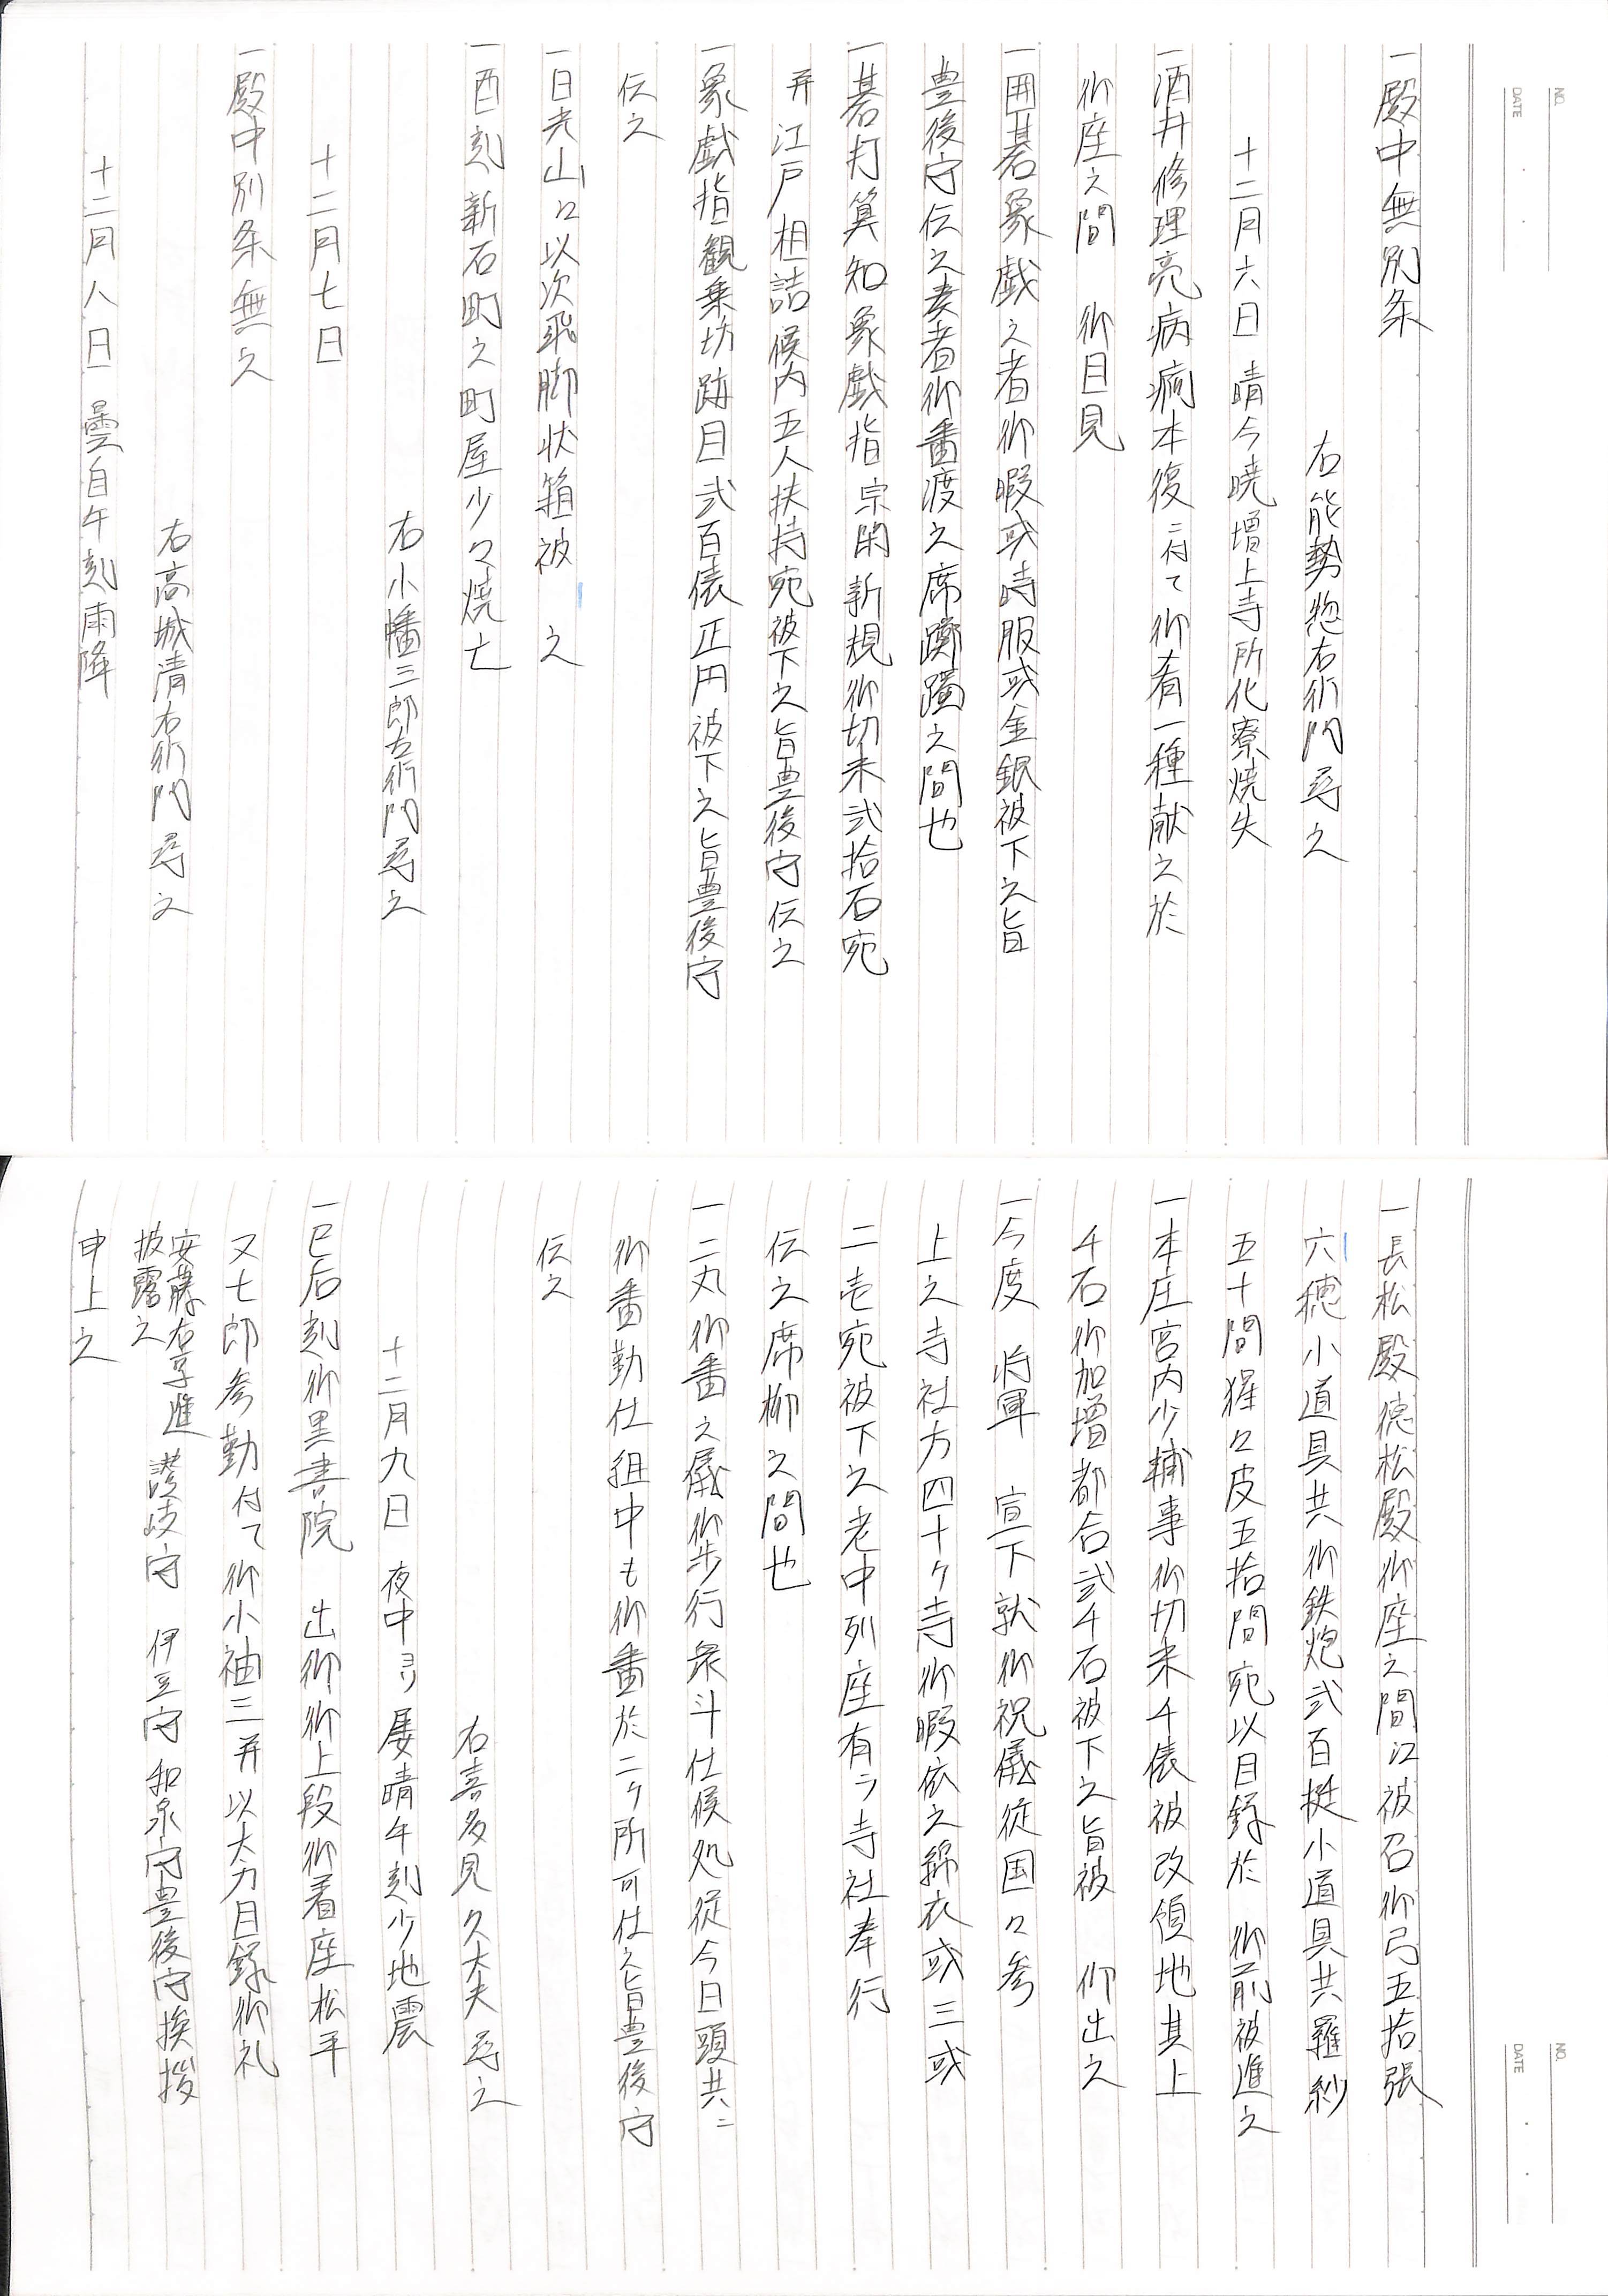 NO.
DATE
一殿中無別条
右能勢惣右衛門尋之
十二月六日 晴今暁増上寺所化寮焼失
一酒井修理亮病痾本復ニ付て御肴一種献之於
御座之間 御目見
一囲碁象戯之者御暇或時服或金銀被下之旨
豊後守伝之奏者御番渡之席躑躅之間也
一碁打算知象戯指宗閑新規御切米弐拾石宛
并江戸相詰候内五人扶持宛被下之旨豊後守伝之
一象戯指観乗坊跡目弐百俵正円被下之旨豊後守
伝之
一日光山々以次飛脚状箱被 之
一酉刻新石町之町屋少々焼亡
右小幡三郎左衛門尋之
十二月七日
一殿中別条無之
右高城清右衛門尋之
十二月八日 曇自午刻雨降
NO.
DATE
一長松殿徳松殿御座之間江被召御弓五拾張
六穂小道具共御鉄炮弐百挺小道具共羅紗
五十間猩々皮五拾間宛以目録於 御前被進之
一本庄宮内少輔事御切米千俵被改領地其上
千石御加増都合弐千石被下之旨被 仰出之
一今度 将軍 宣下就御祝儀従国々参
上之寺社方四十ケ寺御暇依之綿衣或三或
二壱宛被下之老中列座有テ寺社奉行
伝之席柳之間也
一二丸御番之儀御歩行衆斗仕候処従今日頭共ニ
御番勤仕組中も御番於二ケ所可仕之旨豊後守
伝之
右喜多見久大夫尋之
十二月九日 夜中ヨリ属晴午刻少地震
一巳后刻御黒書院 出御御上段御着座松平
又七郎参勤付て御小袖三并以太刀目録御礼
安藤右京進 讃岐守 伊豆守 和泉守豊後守挨拶
披露之
申上之